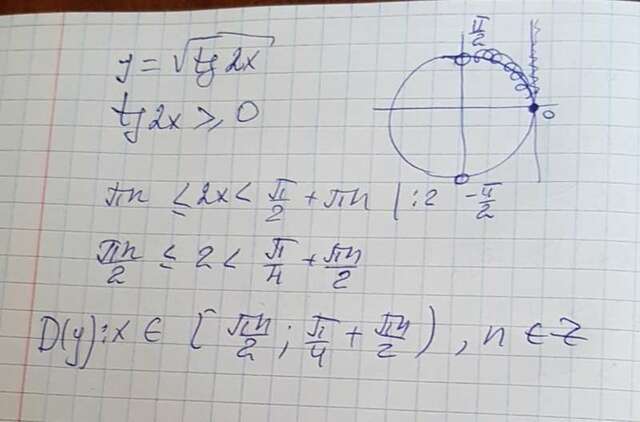 y = √tg 2x
tg 2x ⩾ 0
π/2
0
-π/2
πn ≤ 2x < π/2 + πn | :2
πn/2 ≤ 2 < π/4 + πn/2
D(y): x ∈ [πn/2 ; π/4 + πn/2), n ∈ Z